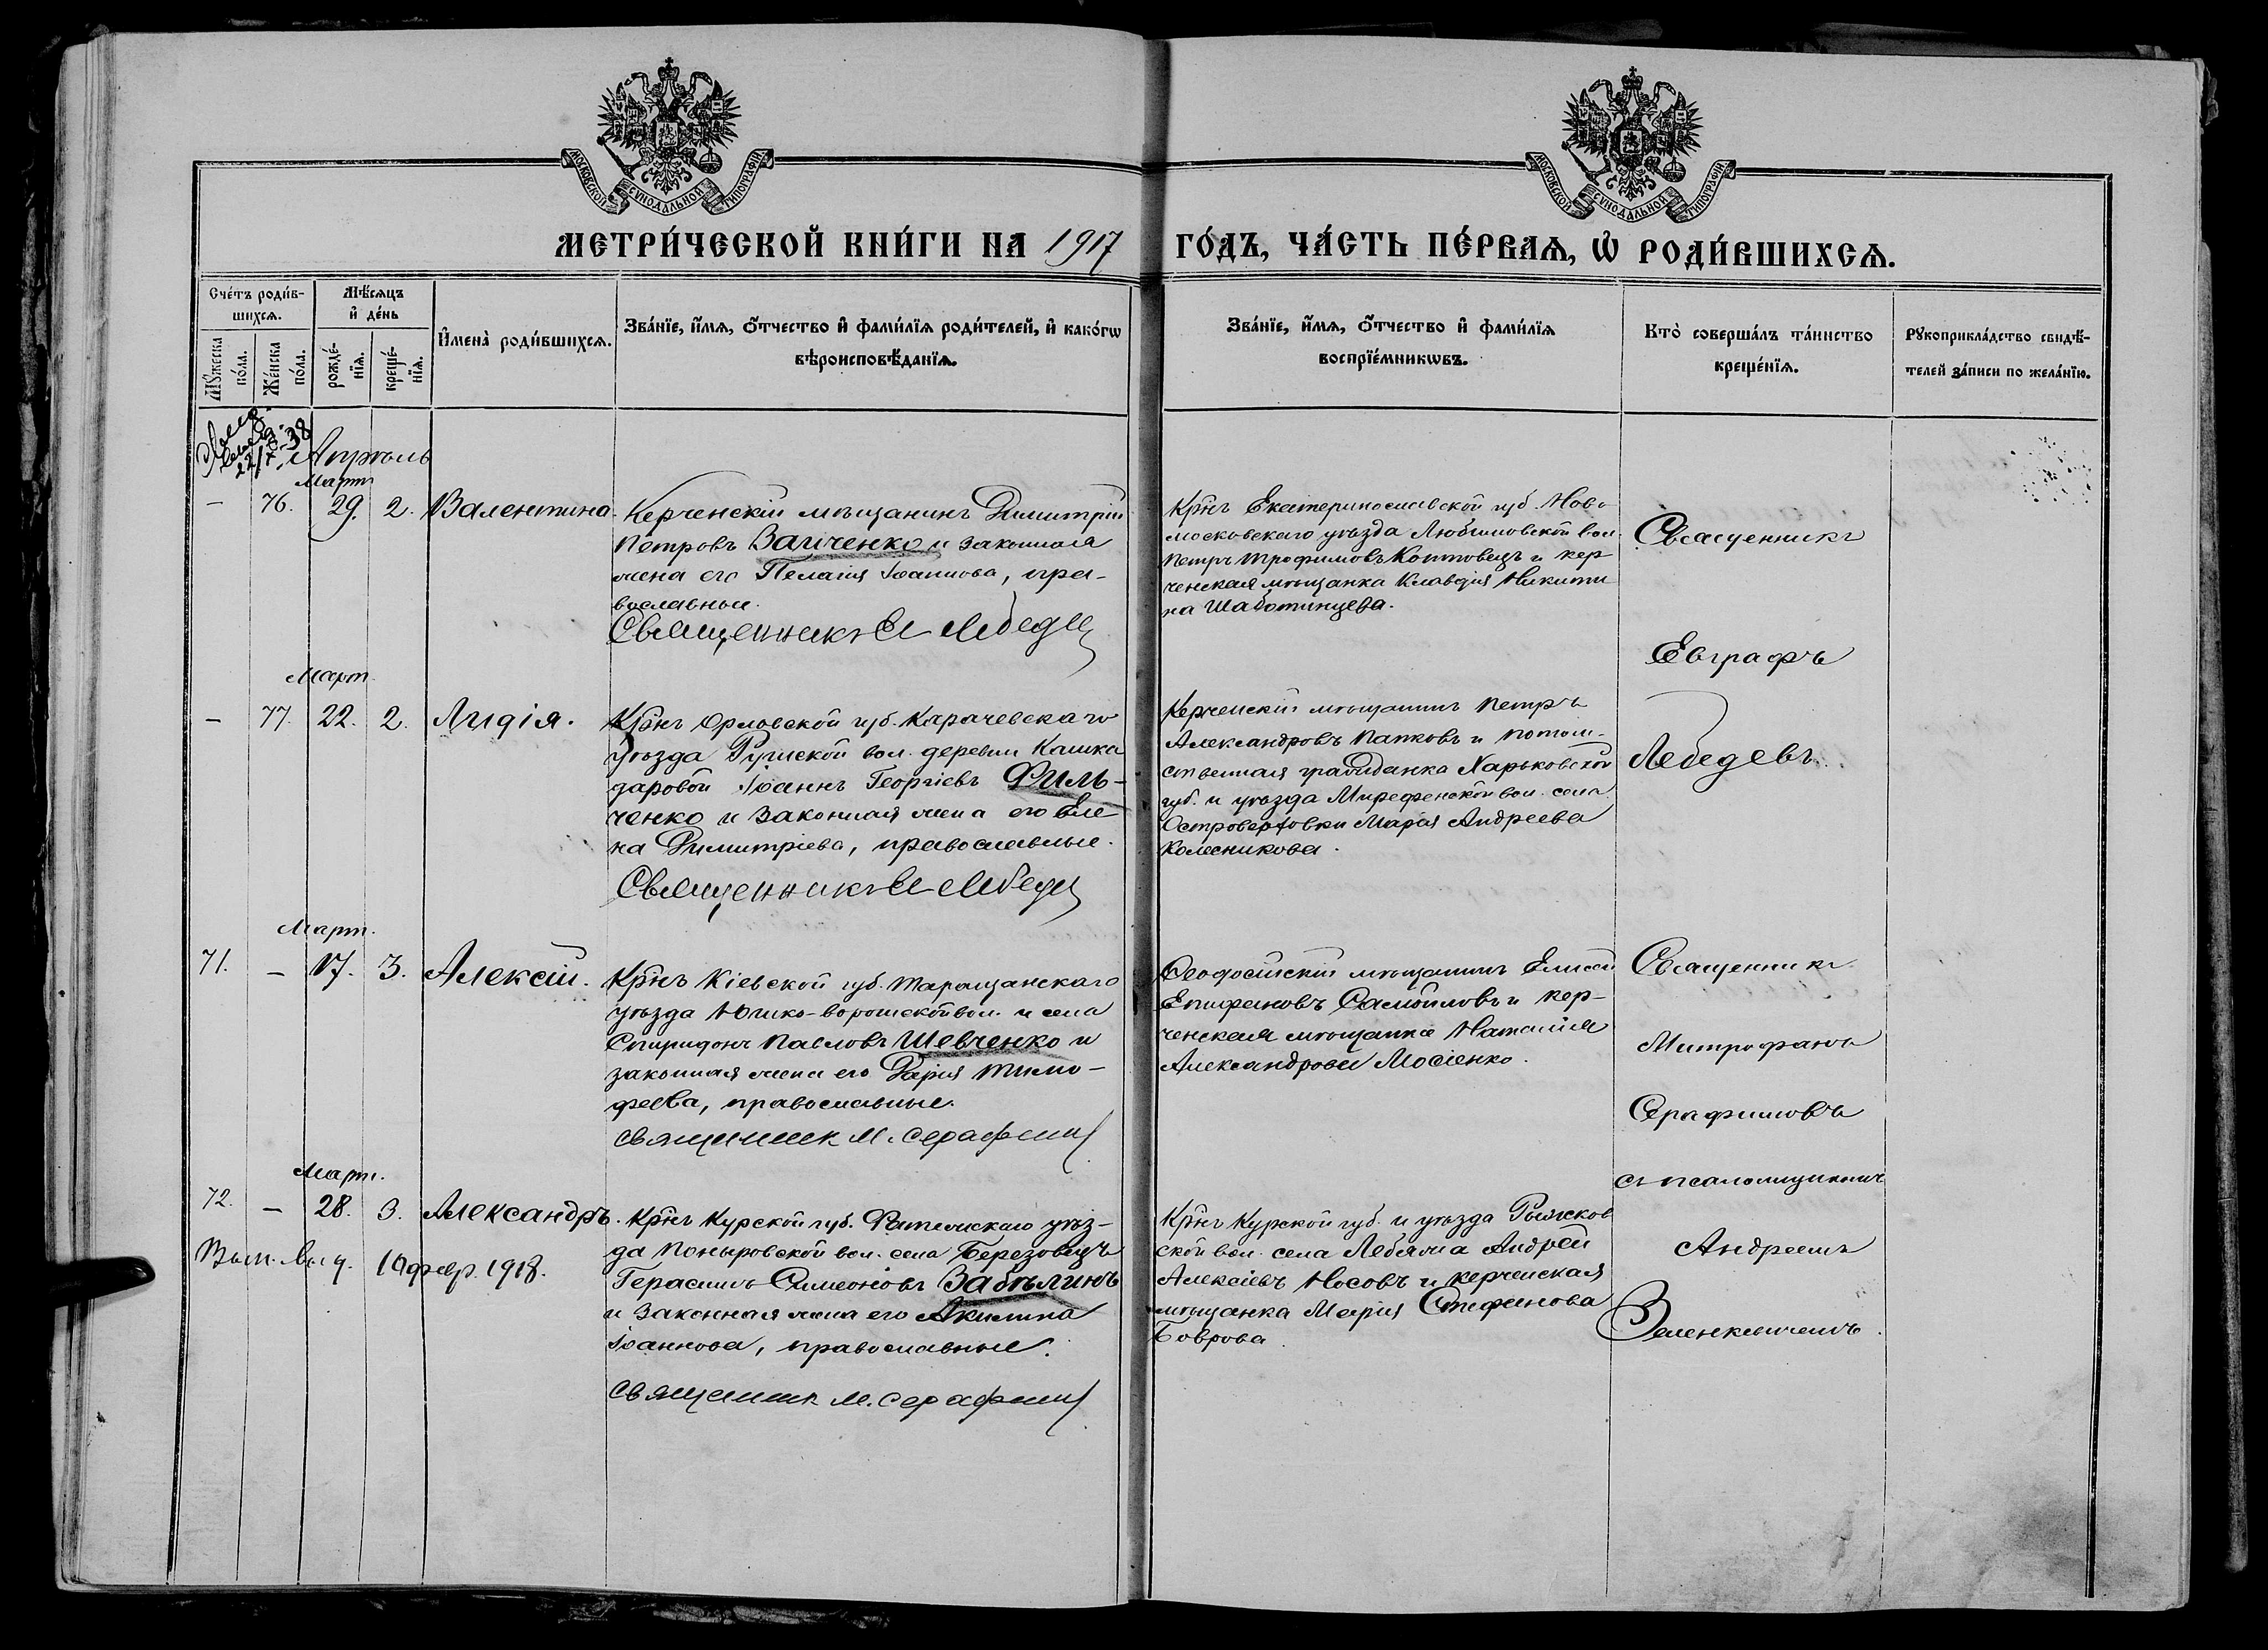 МОСКОВСКОЙ СѴНОДАЛЬНОЙ ТИПОГРАФІИ
МОСКОВСКОЙ СѴНОДАЛЬНОЙ ТИПОГРАФІИ
МЕТРИ́ЧЕСКОЙ КНИ́ГИ НА 1917 ГО́ДЪ, ЧА́СТЬ ПЕ́РВАѦ, Ѡ҆ РОДИ́ВШИХСѦ.
Сче́тъ роди́в-
шихсѧ.
Мꙋ́жеска по́ла.
Же́нска по́ла.
Мѣ́сѧцъ
и҆ де́нь
рожде́-
нїѧ.
креще́-
нїѧ.
И҆мена̀ роди́вшихсѧ.
Зва́нїе, и҆́мѧ, ѻ҆́тчество и҆ фами́лїѧ роди́телей, и҆ како́гѡ
вѣроисповѣ́данїѧ.
Зва́нїе, и҆́мѧ, ѻ҆́тчество и҆ фами́лїѧ
воспрїе́мникѡвъ.
Кто̀ соверша́лъ та́инство
креще́нїѧ.
Рꙋкоприкла́дство свидѣ́-
телей за́писи по жела́нїю.
Апрѣль
Март.
— 76. 29. 2. Валентина.
Керченскій мѣщанинъ Димитрій
Петровъ Ваиченко и законная
жена его Пелагія Іоаннова, пра-
вославные.
Священникъ Е Лебеде
Крн̃ъ Екатеринославской губ. Ново
московскаго уѣзда Любимовской вол.
Петръ Трофимовъ Коптовецъ и кер-
ченская мѣщанка Клавдія Никити
на Шаботинцева.
Священникъ
Евграфъ
Лебедевъ.
Март.
— 77. 22. 2. Лидія.
Крн̃ъ Орловской губ. Карачевскаго
уѣзда Ружской вол. деревни Кашка
даровой Іоаннъ Георгіевъ Филь-
ченко и законная жена его Еле
на Димитріева, православные.
Священникъ Е Лебеде
Керченскій мѣщанинъ Петръ
Александровъ Папковъ и потом-
ственная гражданка Харьковской
губ. и уѣзда Мирефенской вол. села
Островерховки Марія Андреева
Колесникова.
Март.
71. — 17. 3. Алексій.
Крн̃ъ Кіевской губ. Таращанскаго
уѣзда вол. и села
Спиридонъ Павловъ Шевченко и
законная жена его Дарія Тимо-
феева, православные.
священник М. Серафим
Феодосійскій мѣщанинъ Елисей
Епифановъ Самойловъ и кер-
ченская мѣщанка Наталія
Александрова Мосіенко.
Священникъ
Митрофанъ
Серафимовъ
съ псаломщикомъ
Андреемъ
Зеленкевичемъ.
Март.
72. — 28. 3. Александръ.
Вып. выд. 19 февр. 1918.
Крн̃ъ Курской губ. Фатежскаго уѣз-
да Поныровской вол. села Березовецъ
Герасимъ Симеоновъ Забѣлинъ
и законная жена его Акилина
Іоаннова, православные.
священник М. Серафим
Крн̃ъ Курской губ. и уѣзда Рыжков
ской вол. села Лебяжа Андрей
Алексіевъ Носовъ и керченская
мѣщанка Марія Стефанова
Боброва.